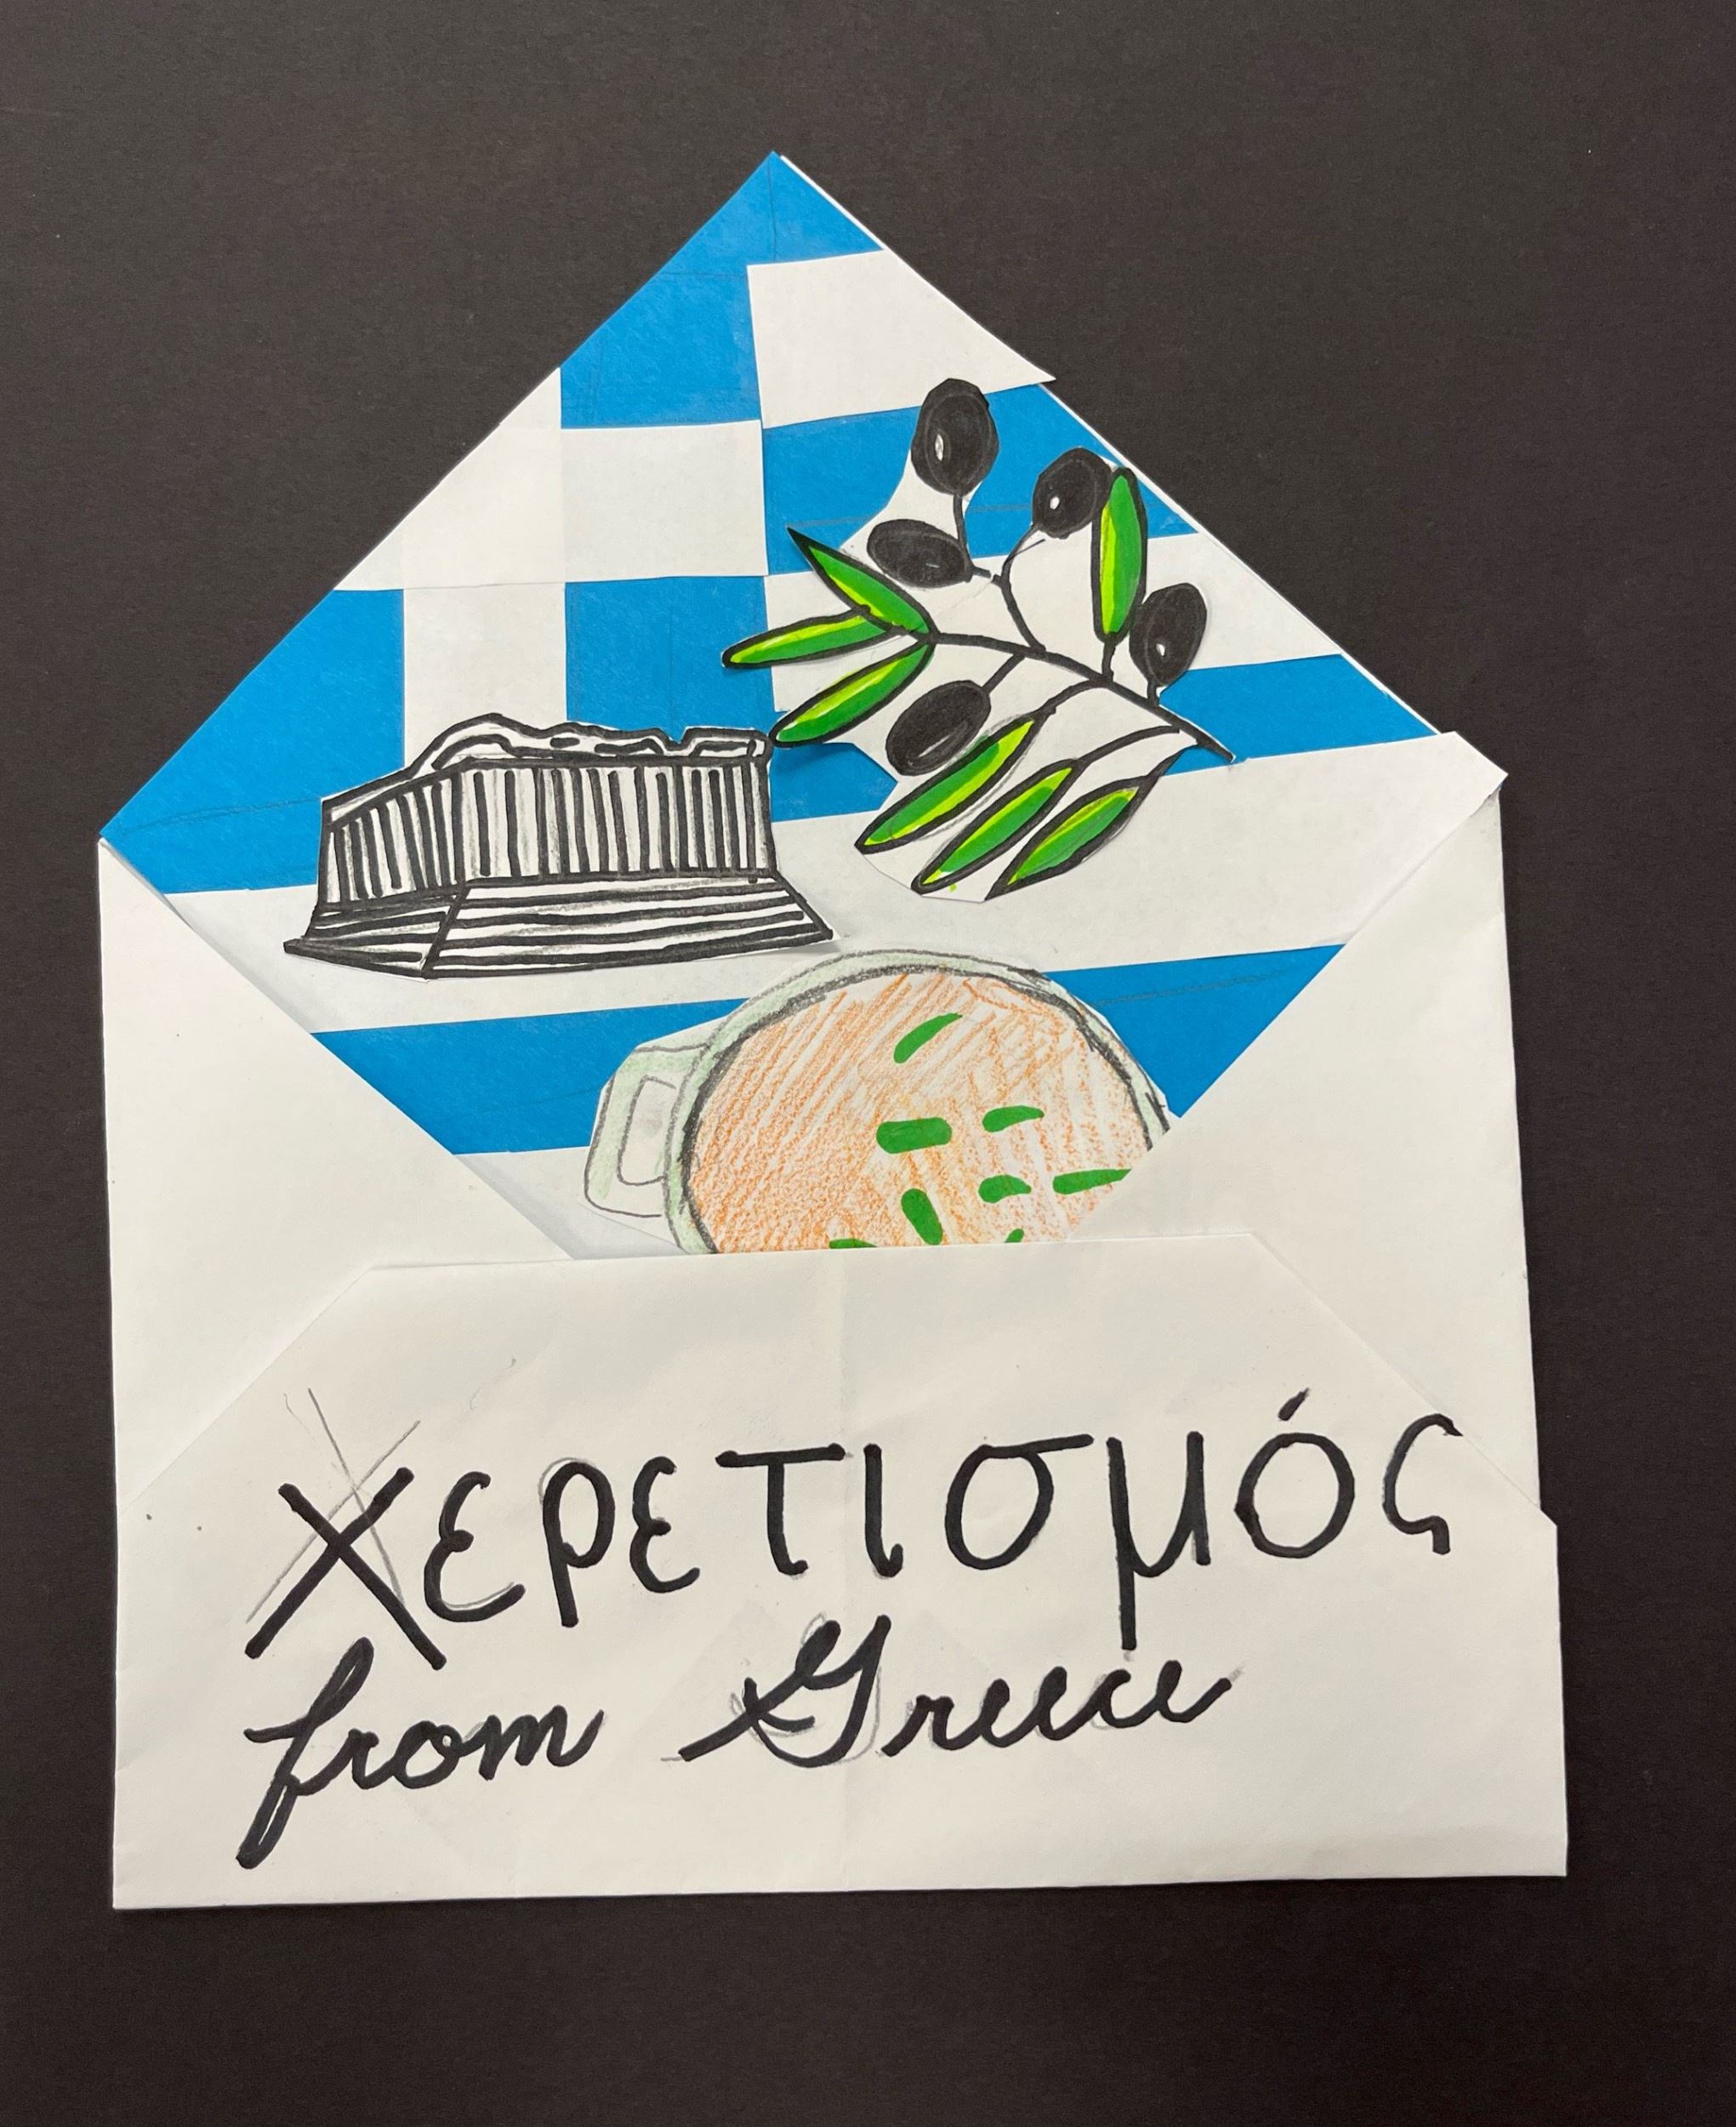 Χερετισμός
from Greece